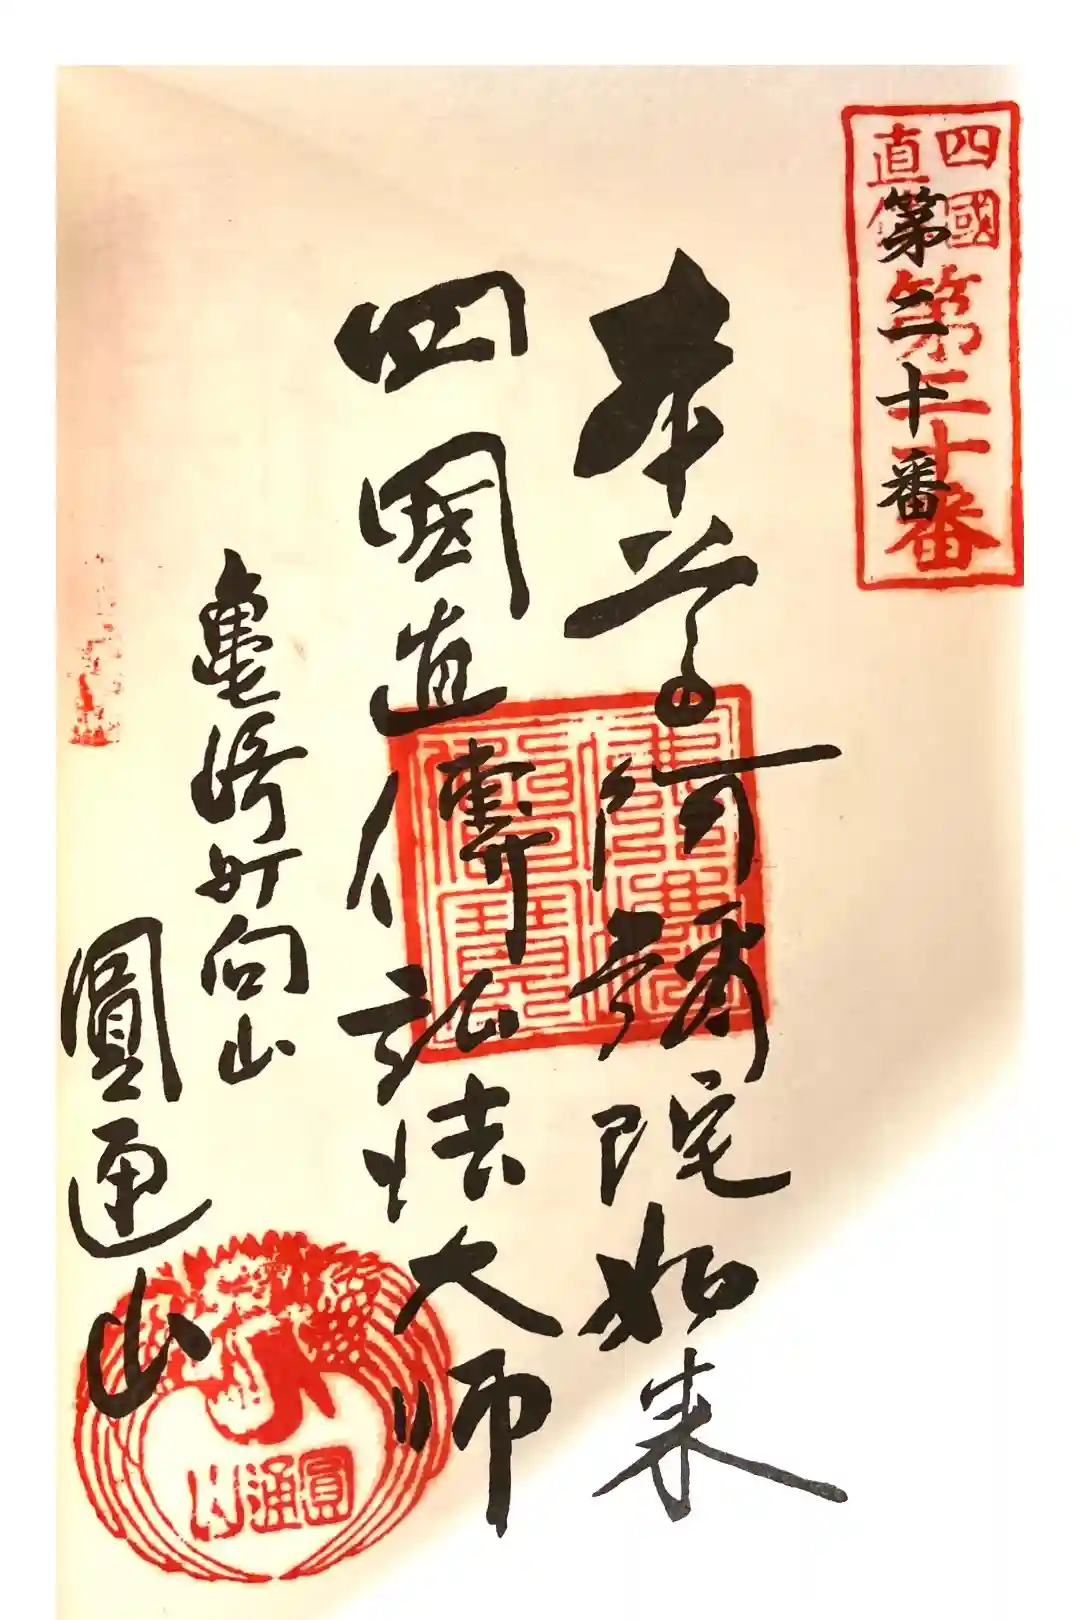 四國
直傳
第二十番
第二十番
本尊阿彌陀如来
四國直傳弘法大師
亀崎町向山
圓通山
圓通山